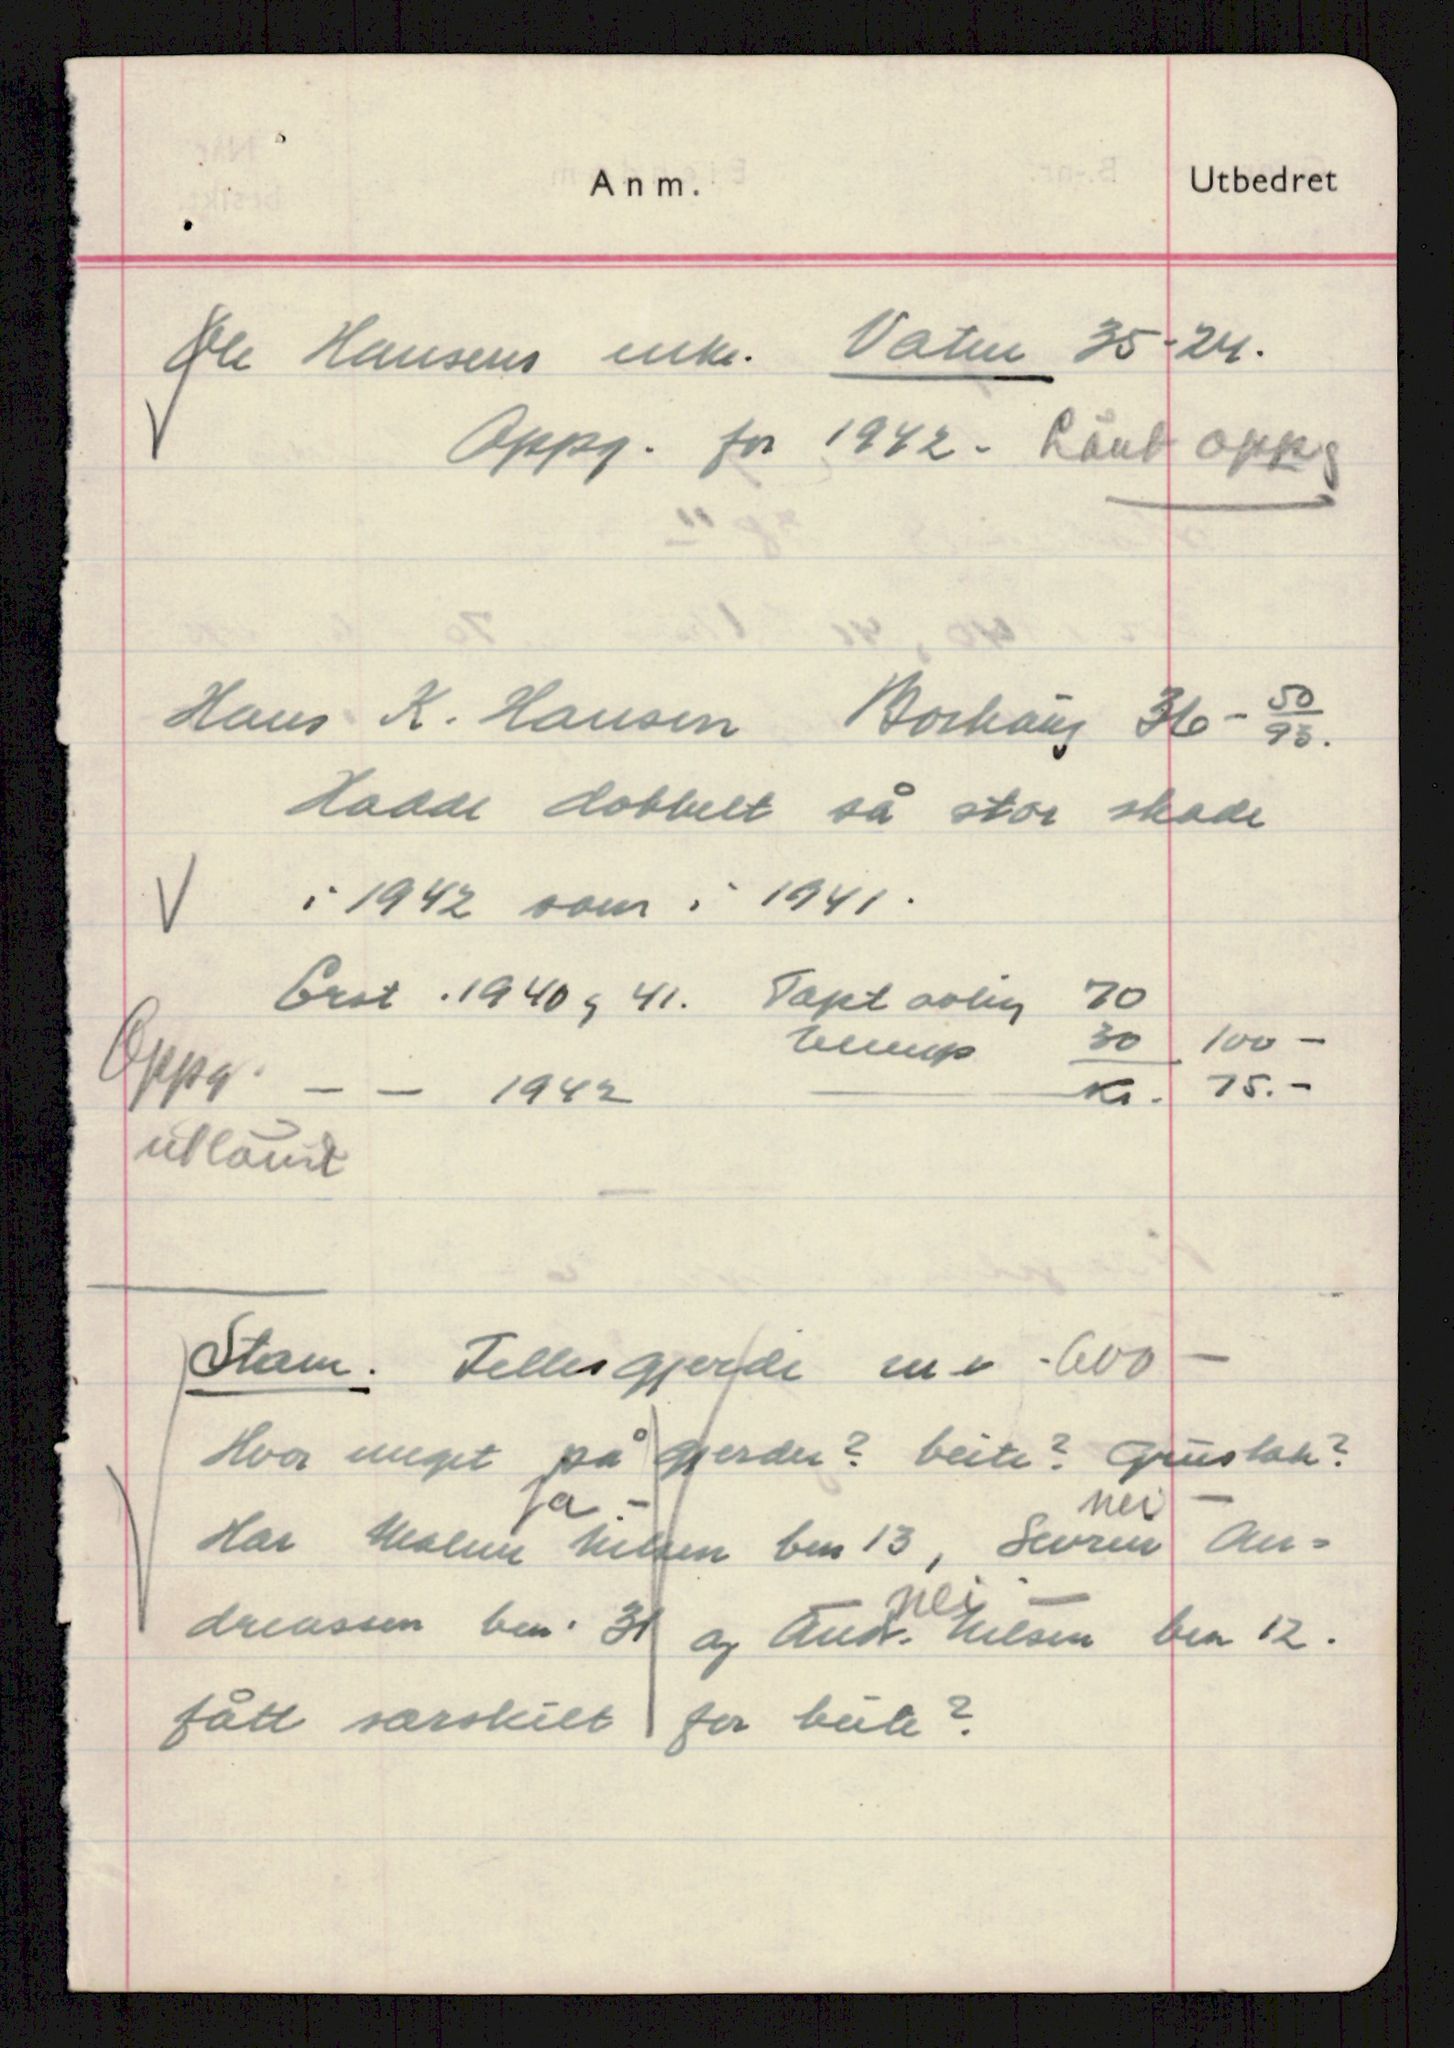 Anm. Utbedret
Ole Hansens enke. Vatne 35-24.
Oppg. for 1942 - Lånt oppg
Hans K. Hansen Borhaug 36 - 50/93.
Hadde dobbelt så stor skade
i 1942 som i 1941.
Erst. 1940 og 41. Tapt avling 70
ulemp 30 100 -
Oppg. — — 1942 Kr. 75.-
utlånt
Stave. Fellesgjerde m v. 600 -
Hvor meget på gjerder? beite? Grustak?
ja - nei -
Har Nilsen bnr 13, Severin An-
nei -
dreassen bnr. 31 og And. Nilsen bnr 12.
fått særskilt for beite?